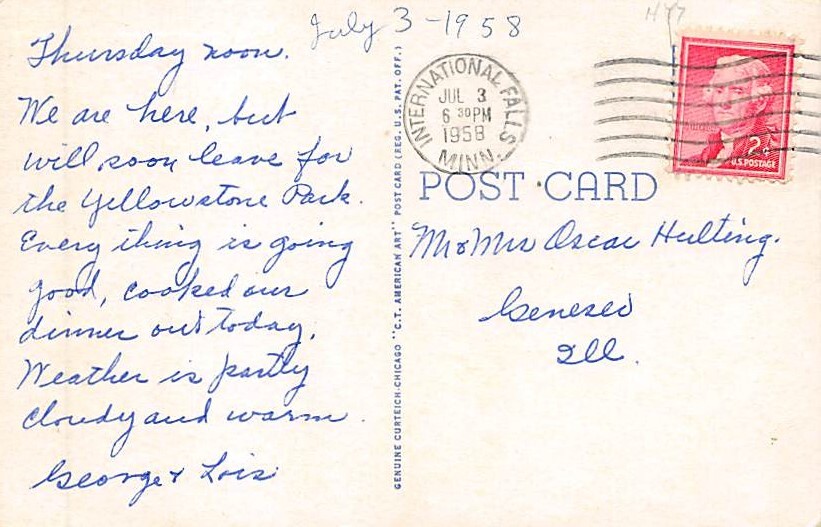 July 3 - 1958
HY7
Thursday noon.
We are here, but
will soon leave for
the Yellowstone Park.
Every thing is going
good, cooked our
dinner out today.
Weather is partly
cloudy and warm.
George & Lois
GENUINE CURTEICH-CHICAGO "C.T. AMERICAN ART" POST CARD (REG. U.S. PAT. OFF.)
INTERNATIONAL FALLS
JUL 3
6 30 PM
1958
MINN.
2¢
U.S. POSTAGE
POST CARD
Mr & Mrs Oscar Hulting.
Geneseo
Ill.